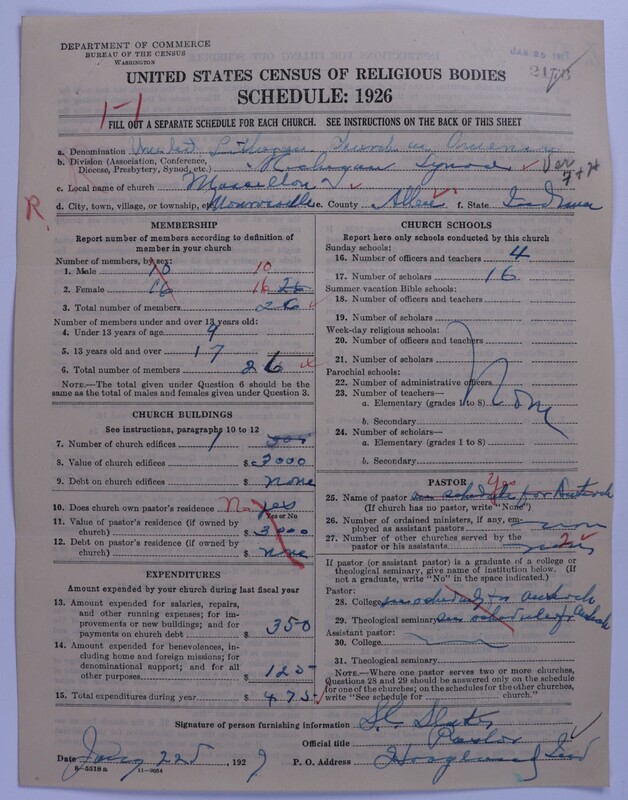 DEPARTMENT OF COMMERCE
BUREAU OF THE CENSUS
WASHINGTON
UNITED STATES CENSUS OF RELIGIOUS BODIES
SCHEDULE: 1926
1-1
FILL OUT A SEPARATE SCHEDULE FOR EACH CHURCH. SEE INSTRUCTIONS ON THE BACK OF THIS SHEET
a. Denomination United Lutheran Church in America
b. Division (Association, Conference, Diocese, Presbytery, Synod, etc.) Michigan Synod
c. Local name of church Massillon
R.
d. City, town, village, or township, etc. Monroeville e. County Allen f. State Indiana
MEMBERSHIP
Report number of members according to definition of
member in your church
Number of members, by sex:
1. Male 10 10
2. Female 16 16 26
3. Total number of members 26
Number of members under and over 13 years old:
4. Under 13 years of age 9
5. 13 years old and over 17
6. Total number of members 26
NOTE.—The total given under Question 6 should be the
same as the total of males and females given under Question 3.
CHURCH BUILDINGS
See instructions, paragraphs 10 to 12
7. Number of church edifices 1
8. Value of church edifices $ 3000
9. Debt on church edifices $ none
10. Does church own pastor's residence No yes
Yes or No
11. Value of pastor's residence (if owned by
church) $ 3000
12. Debt on pastor's residence (if owned by
church) $ none
EXPENDITURES
Amount expended by your church during last fiscal year
13. Amount expended for salaries, repairs,
and other running expenses; for im-
provements or new buildings; and for
payments on church debt $ 350
14. Amount expended for benevolences, in-
cluding home and foreign missions; for
denominational support; and for all
other purposes $ 125
15. Total expenditures during year $ 475
CHURCH SCHOOLS
Report here only schools conducted by this church
Sunday schools:
16. Number of officers and teachers 4
17. Number of scholars 16
Summer vacation Bible schools:
18. Number of officers and teachers
19. Number of scholars
Week-day religious schools:
20. Number of officers and teachers
21. Number of scholars
Parochial schools:
22. Number of administrative officers
23. Number of teachers—
a. Elementary (grades 1 to 8)
None
b. Secondary
24. Number of scholars—
a. Elementary (grades 1 to 8)
b. Secondary
PASTOR
Yes
25. Name of pastor see schedule for
(If church has no pastor, write "None")
26. Number of ordained ministers, if any, em-
ployed as assistant pastors none
27. Number of other churches served by the
pastor or his assistants 2
If pastor (or assistant pastor) is a graduate of a college or
theological seminary, give name of institution below. (If
not a graduate, write "No" in the space indicated.)
Pastor:
28. College see schedule for
29. Theological seminary see schedule for
Assistant pastor:
30. College
31. Theological seminary
NOTE.—Where one pastor serves two or more churches,
Questions 28 and 29 should be answered only on the schedule
for one of the churches; on the schedules for the other churches,
write "See schedule for church."
Signature of person furnishing information
Official title Pastor
Date Jany 22d, 1927 P. O. Address Hoagland Ind
8-5518a 11-9054